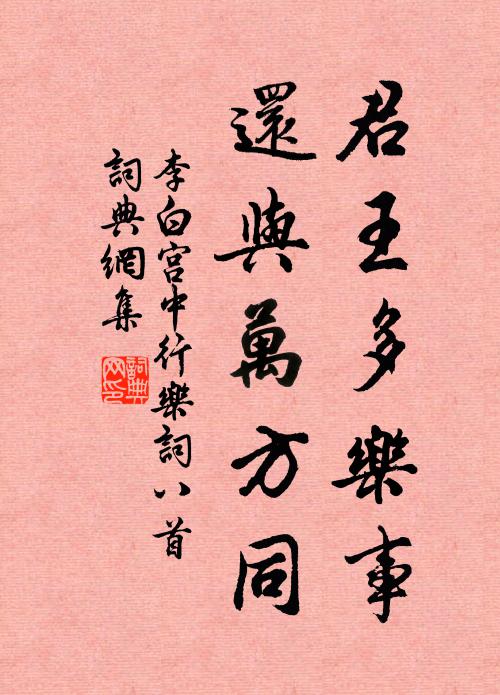 君王多樂事
還與萬方同
李白宮中行樂詞八首
詞典網集
詞典網印